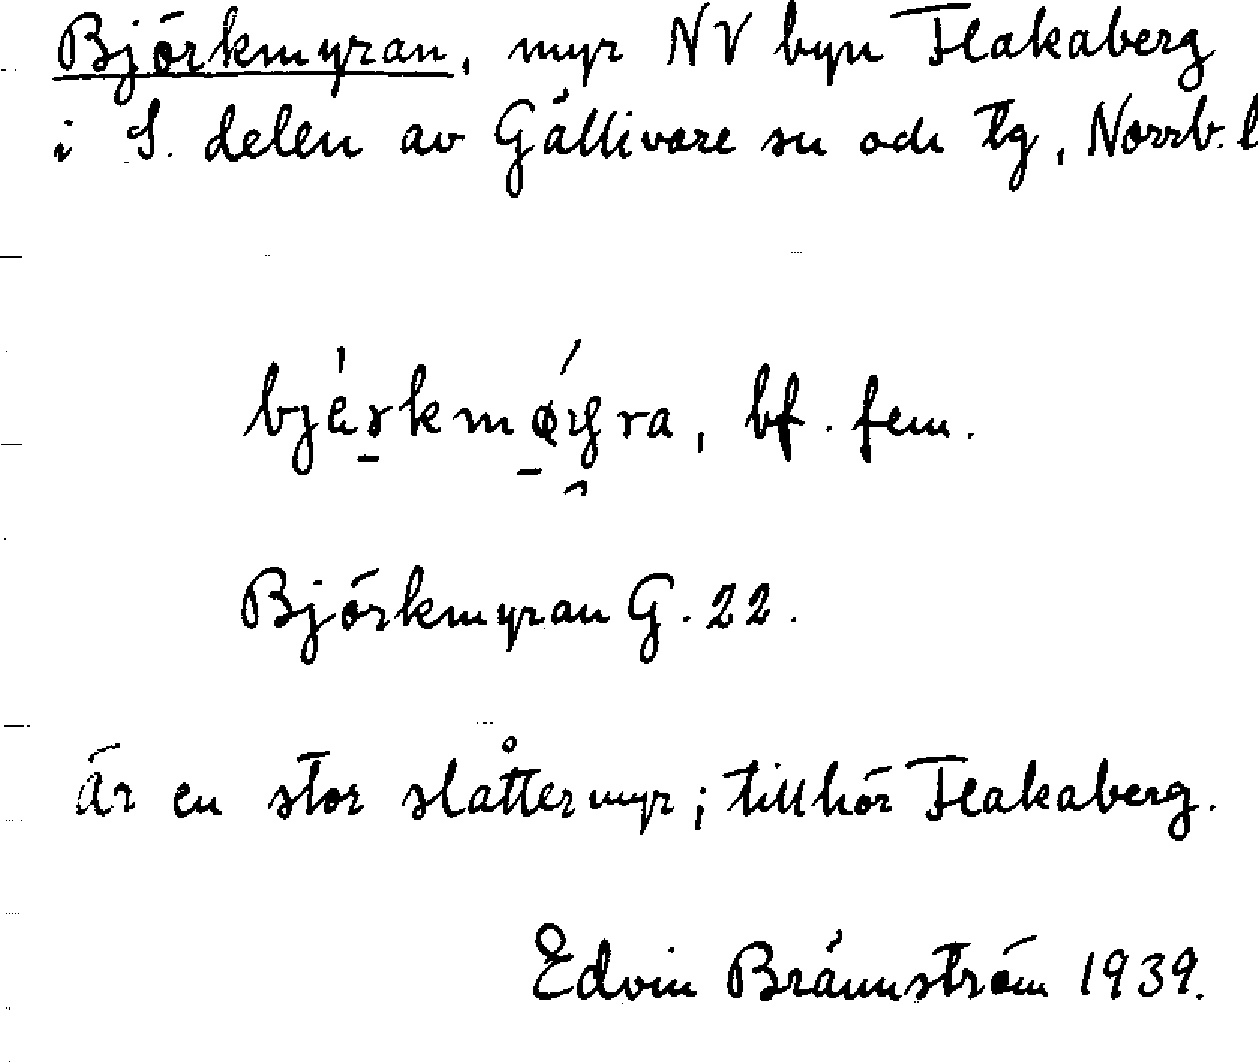 Björkmyran, myr NV byn Flakaberg
i S. delen av Gällivare sn och tg, Norrb. l
bf. fem.
Björkmyran G. 22.
är en stor slåttermyr; tillhör Flakaberg.
Edvin Brännström 1939.